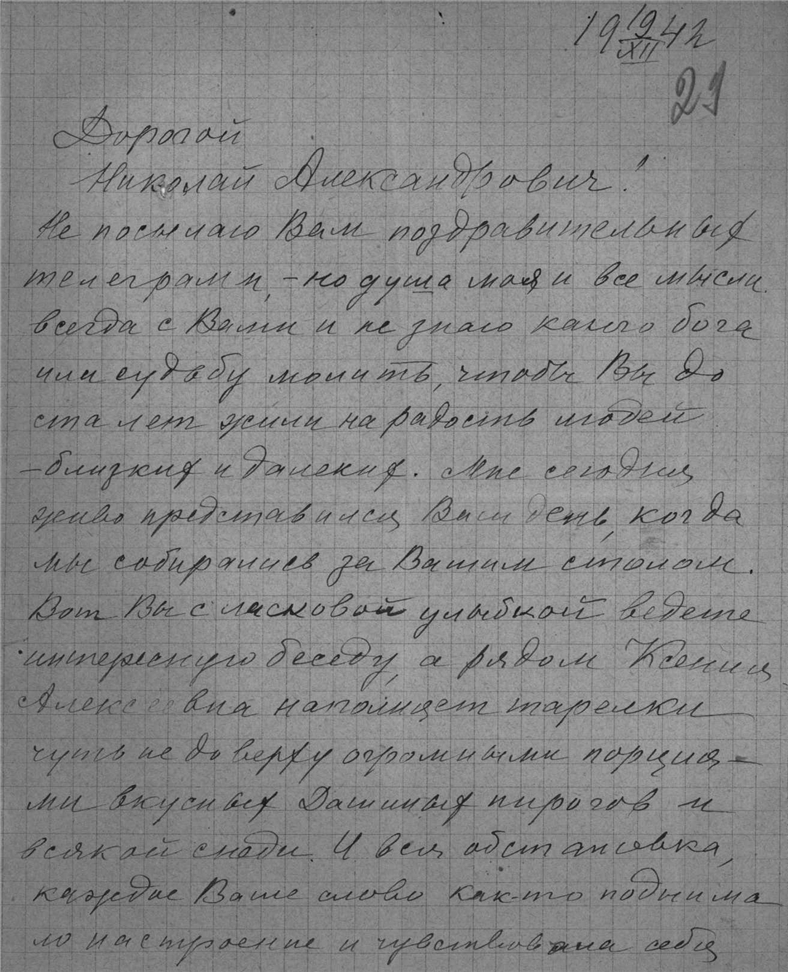 19 19/XII 42
29
Дорогой
Николай Александрович!
Не посылаю Вам поздравительных
телеграмм, – но душа моя и все мысли
всегда с Вами и не знаю какого бога
или судьбу молить, чтобы Вы до
ста лет жили на радость людей
– близких и далеких. Мне сегодня
живо представился Ваш день, когда
мы собирались за Вашим столом.
Вот Вы с ласковой улыбкой ведете
интересную беседу, а рядом Ксения
Алексеевна наполняет тарелки
чуть не доверху огромными порция–
ми вкусных Дашиных пирогов и
всякой снеди. И вся обстановка,
каждое Ваше слово как-то поднима
ло настроение и чувствовала себя